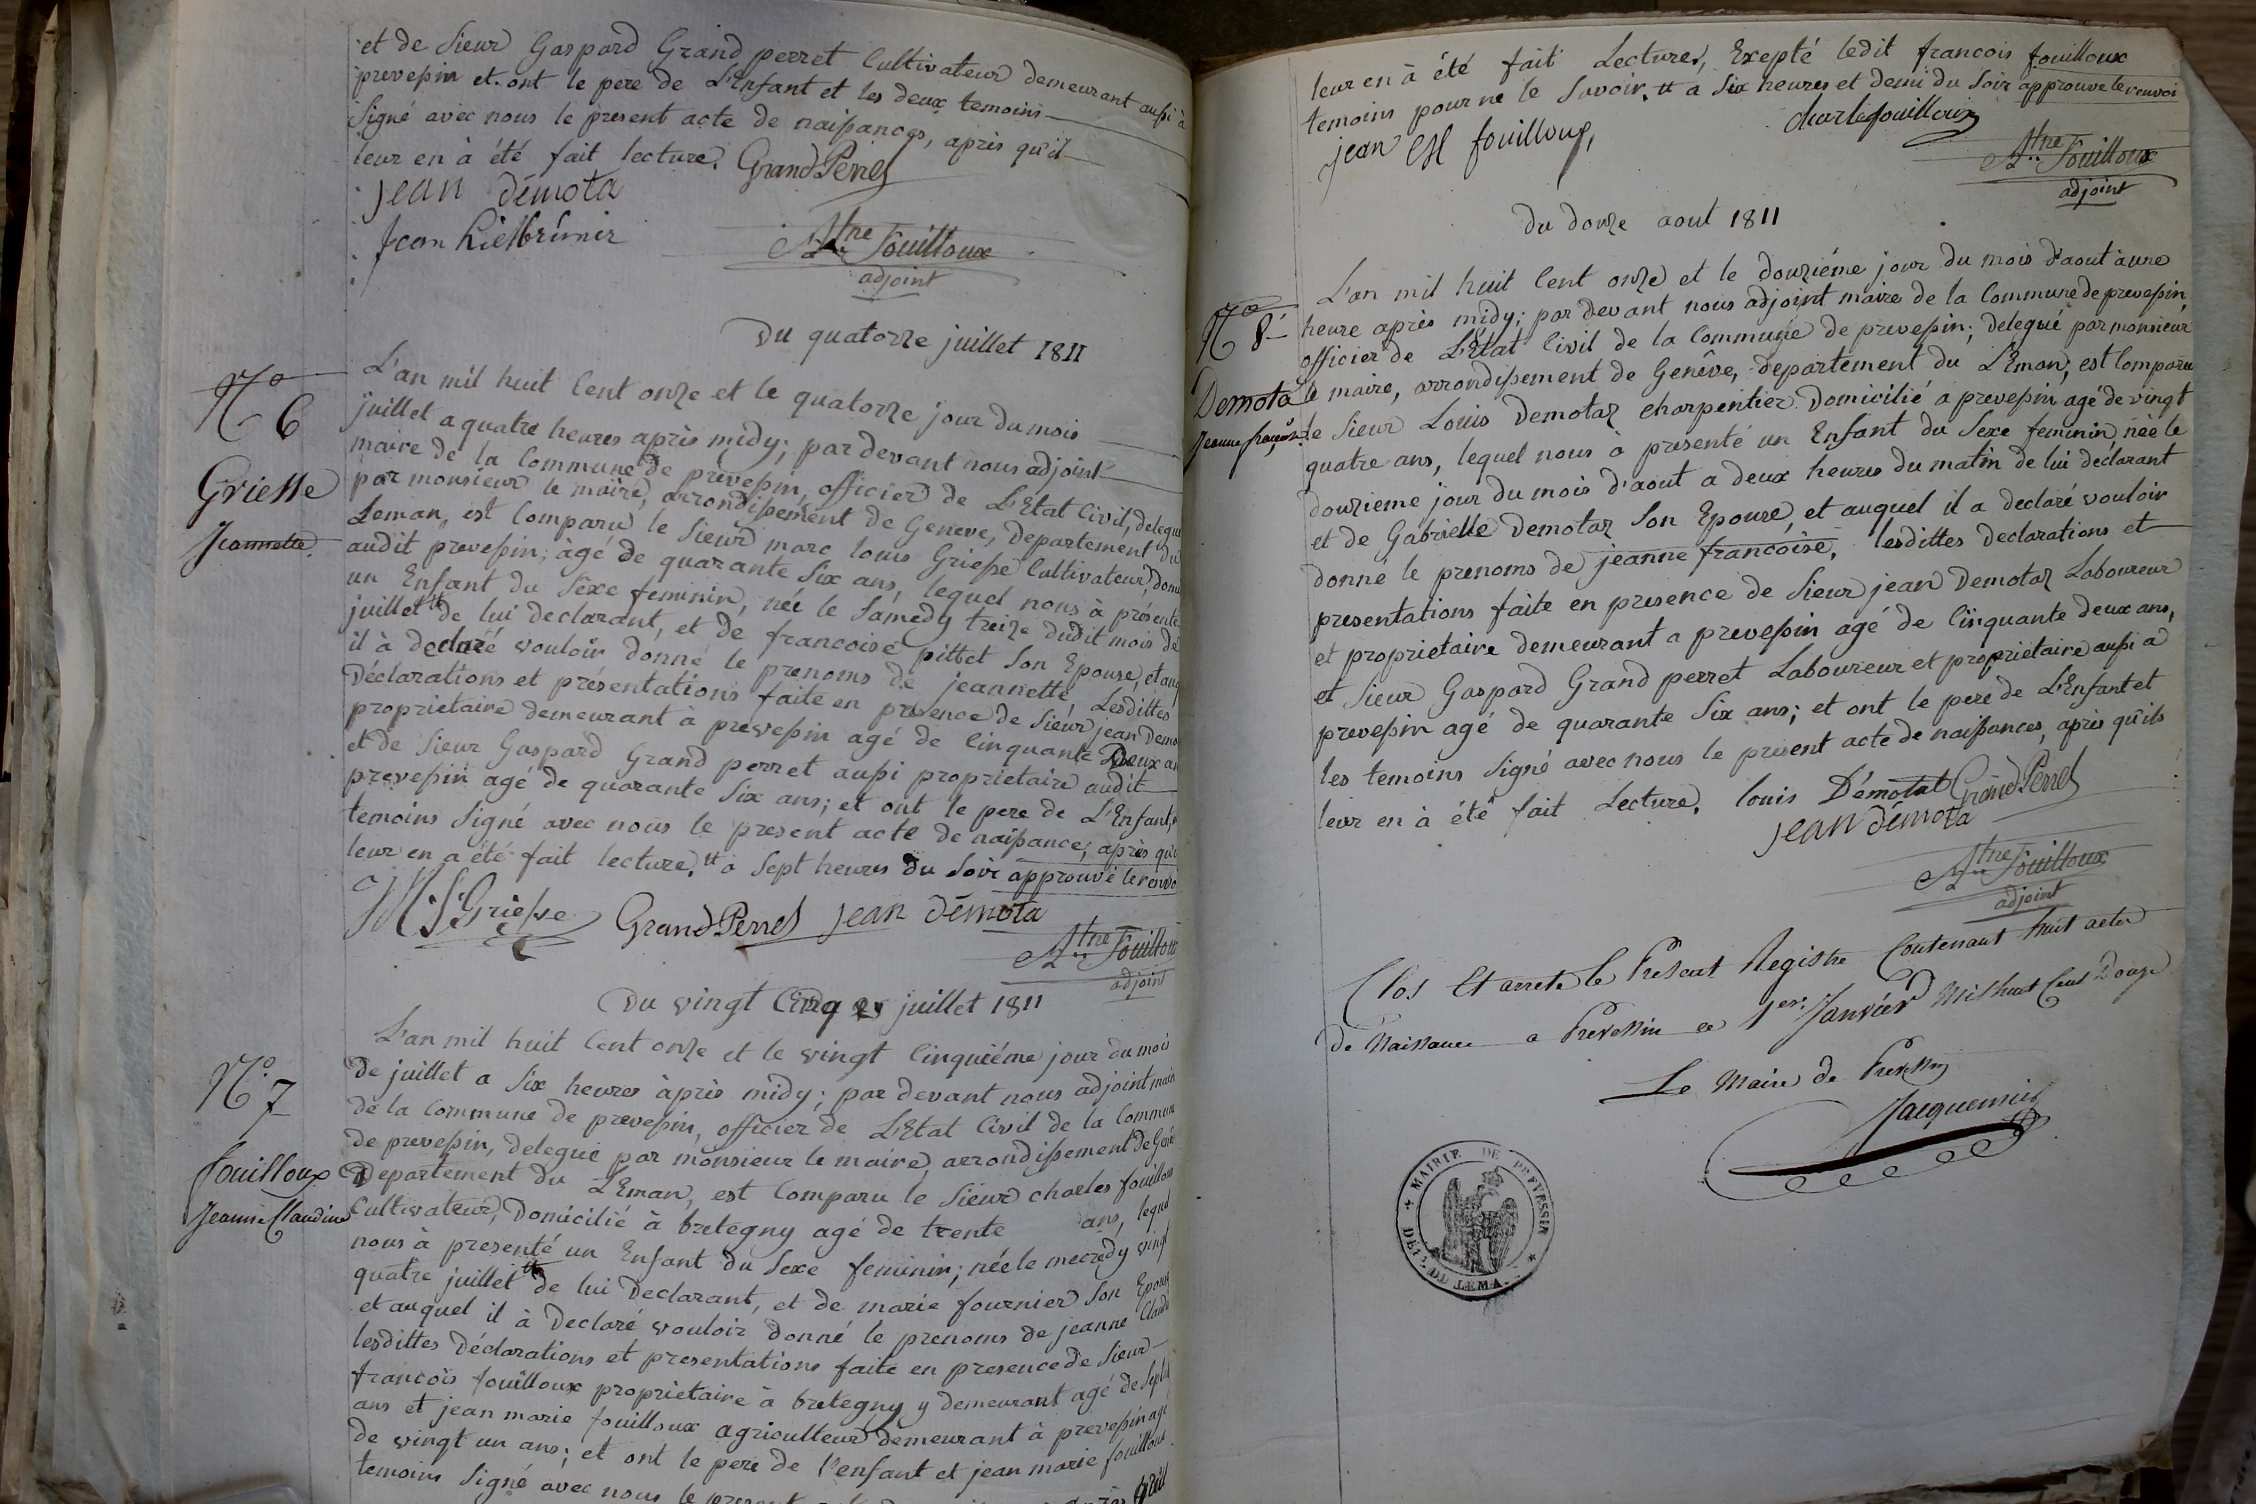 et de Sieur Gaspard Grand perret Cultivateur demeurant aussi à
prevessin et ont le pere de L'Enfant et les deux temoins
Signé avec nous le présent acte de naissances, après qu'il
leur en à été fait lecture. GrandPerret
jean démota
Mtne Fouilloux
adjoint
Du quatorze juillet 1811
N° 6
Griesse
Jeannette.
L'an mil huit Cent onze et le quatorze jour du mois
juillet a quatre heures après midy; par devant nous adjoint
maire de la Commune de prevessin, officier de L'Etat Civil, delegué
par monsieur le maire, arrondissement de Geneve, Departement du
Leman, est Comparu le Sieur marc louis Griesse Cultivateur, domi
audit prevessin; àgé de quarante Six ans, lequel nous à présente
un Enfant du Sexe feminin, née le Samedy treize dudit mois de
juillet tt de lui declarant, et de francoise pittet Son Epouse, et auq
il à declaré vouloir donné le prenoms de jeannette, Lesdittes
Déclarations et présentations faite en presence de Sieur jean Demo
proprietaire demeurant à prevessin agé de Cinquante Deux an
et de Sieur Gaspard Grand perret aussi proprietaire audit
prevessin agé de quarante Six ans; et ont le pere de L'Enfant,
temoins Signé avec nous le present acte de naissance, après qu'i
leur en a été fait lecture. tt a Sept heures du Soir approuvé le renvo
Griesse GrandPerret jean démota
Mtne Fouilloux
adjoint
Du vingt Cinq juillet 1811
N° 7
Fouilloux
Jeanne Claudine
L'an mil huit Cent onze et le vingt Cinquiéme jour du mois
de juillet a Six heures àprès midy; par devant nous adjoint maire
de la Commune de prevessin, officier de L'Etat Civil de la Commune
de prevessin, delegué par monsieur le maire, arrondissement de Gene
Departement du Léman, est Comparu le Sieur charles fouilloux
Cultivateur, Domicilié à bretegny agé de trente ans, lequel
nous à presenté un Enfant du Sexe feminin; née le mecredy vingt
quatre juillet tt de lui Declarant, et de marie fournier Son Epouse
et auquel il à Declaré vouloir donné le prenoms de jeanne Claudi
lesdittes Déclarations et presentations faite en presence de Sieur
francois fouilloux proprietaire à bretegny y demeurant agé de Sept
ans et jean marie fouilloux agriculteur demeurant à prevessin agé
de vingt un ans; et ont le pere de l'enfant et jean marie fouilloux
temoins Signé avec nous le present
leur en à été fait Lectures, Exepté ledit francois fouilloux
temoins pour ne le Savoir. tt a Six heures et demi du Soir approuve le renvoi
jean fouilloux, charle fouilloux
Mtne Fouilloux
adjoint
Du douze aout 1811
N° 8
Demota
Jeanne françoise
L'an mil huit Cent onze et le douziéme jour du mois d'aout à une
heure après midy; par devant nous adjoint maire de la Commune de prevessin,
officier de L'Etat Civil de la Commune de prevessin; delegué par monsieur
le maire, arrondissement de Genêve, departement du L'Eman, est Comparu
le Sieur Louis Demotaz charpentier Domicilié a prevessin agé de vingt
quatre ans, lequel nous à presenté un Enfant du Sexe feminin, née le
douzieme jour du mois d'aout a deux heures du matin de lui declarant
et de Gabrielle Demotaz Son Epouse, et auquel il a declaré vouloir
donné le prenoms de jeanne francoise, lesdittes declarations et
presentations faite en presence de Sieur jean Demotaz Laboureur
et proprietaire demeurant a prevessin agé de Cinquante deux ans,
et Sieur Gaspard Grand perret Laboureur et proprietaire aussi a
prevessin agé de quarante Six ans; et ont le pere de L'Enfant et
les temoins Signé avec nous le present acte de naissances, après qu'ils
leur en à été fait Lecture. louis Démotat GrandPerret
jean démota
Mtne Fouilloux
adjoint
Clos Et arreté le Present Registre Contenant huit actes
de Naissance a Prevessin ce 1er Janvier Mil huit Cent Douze
Le Maire de Prevessin
Jacquemier
MAIRIE DE PREVESSIN
DÉPT. DE LEMA